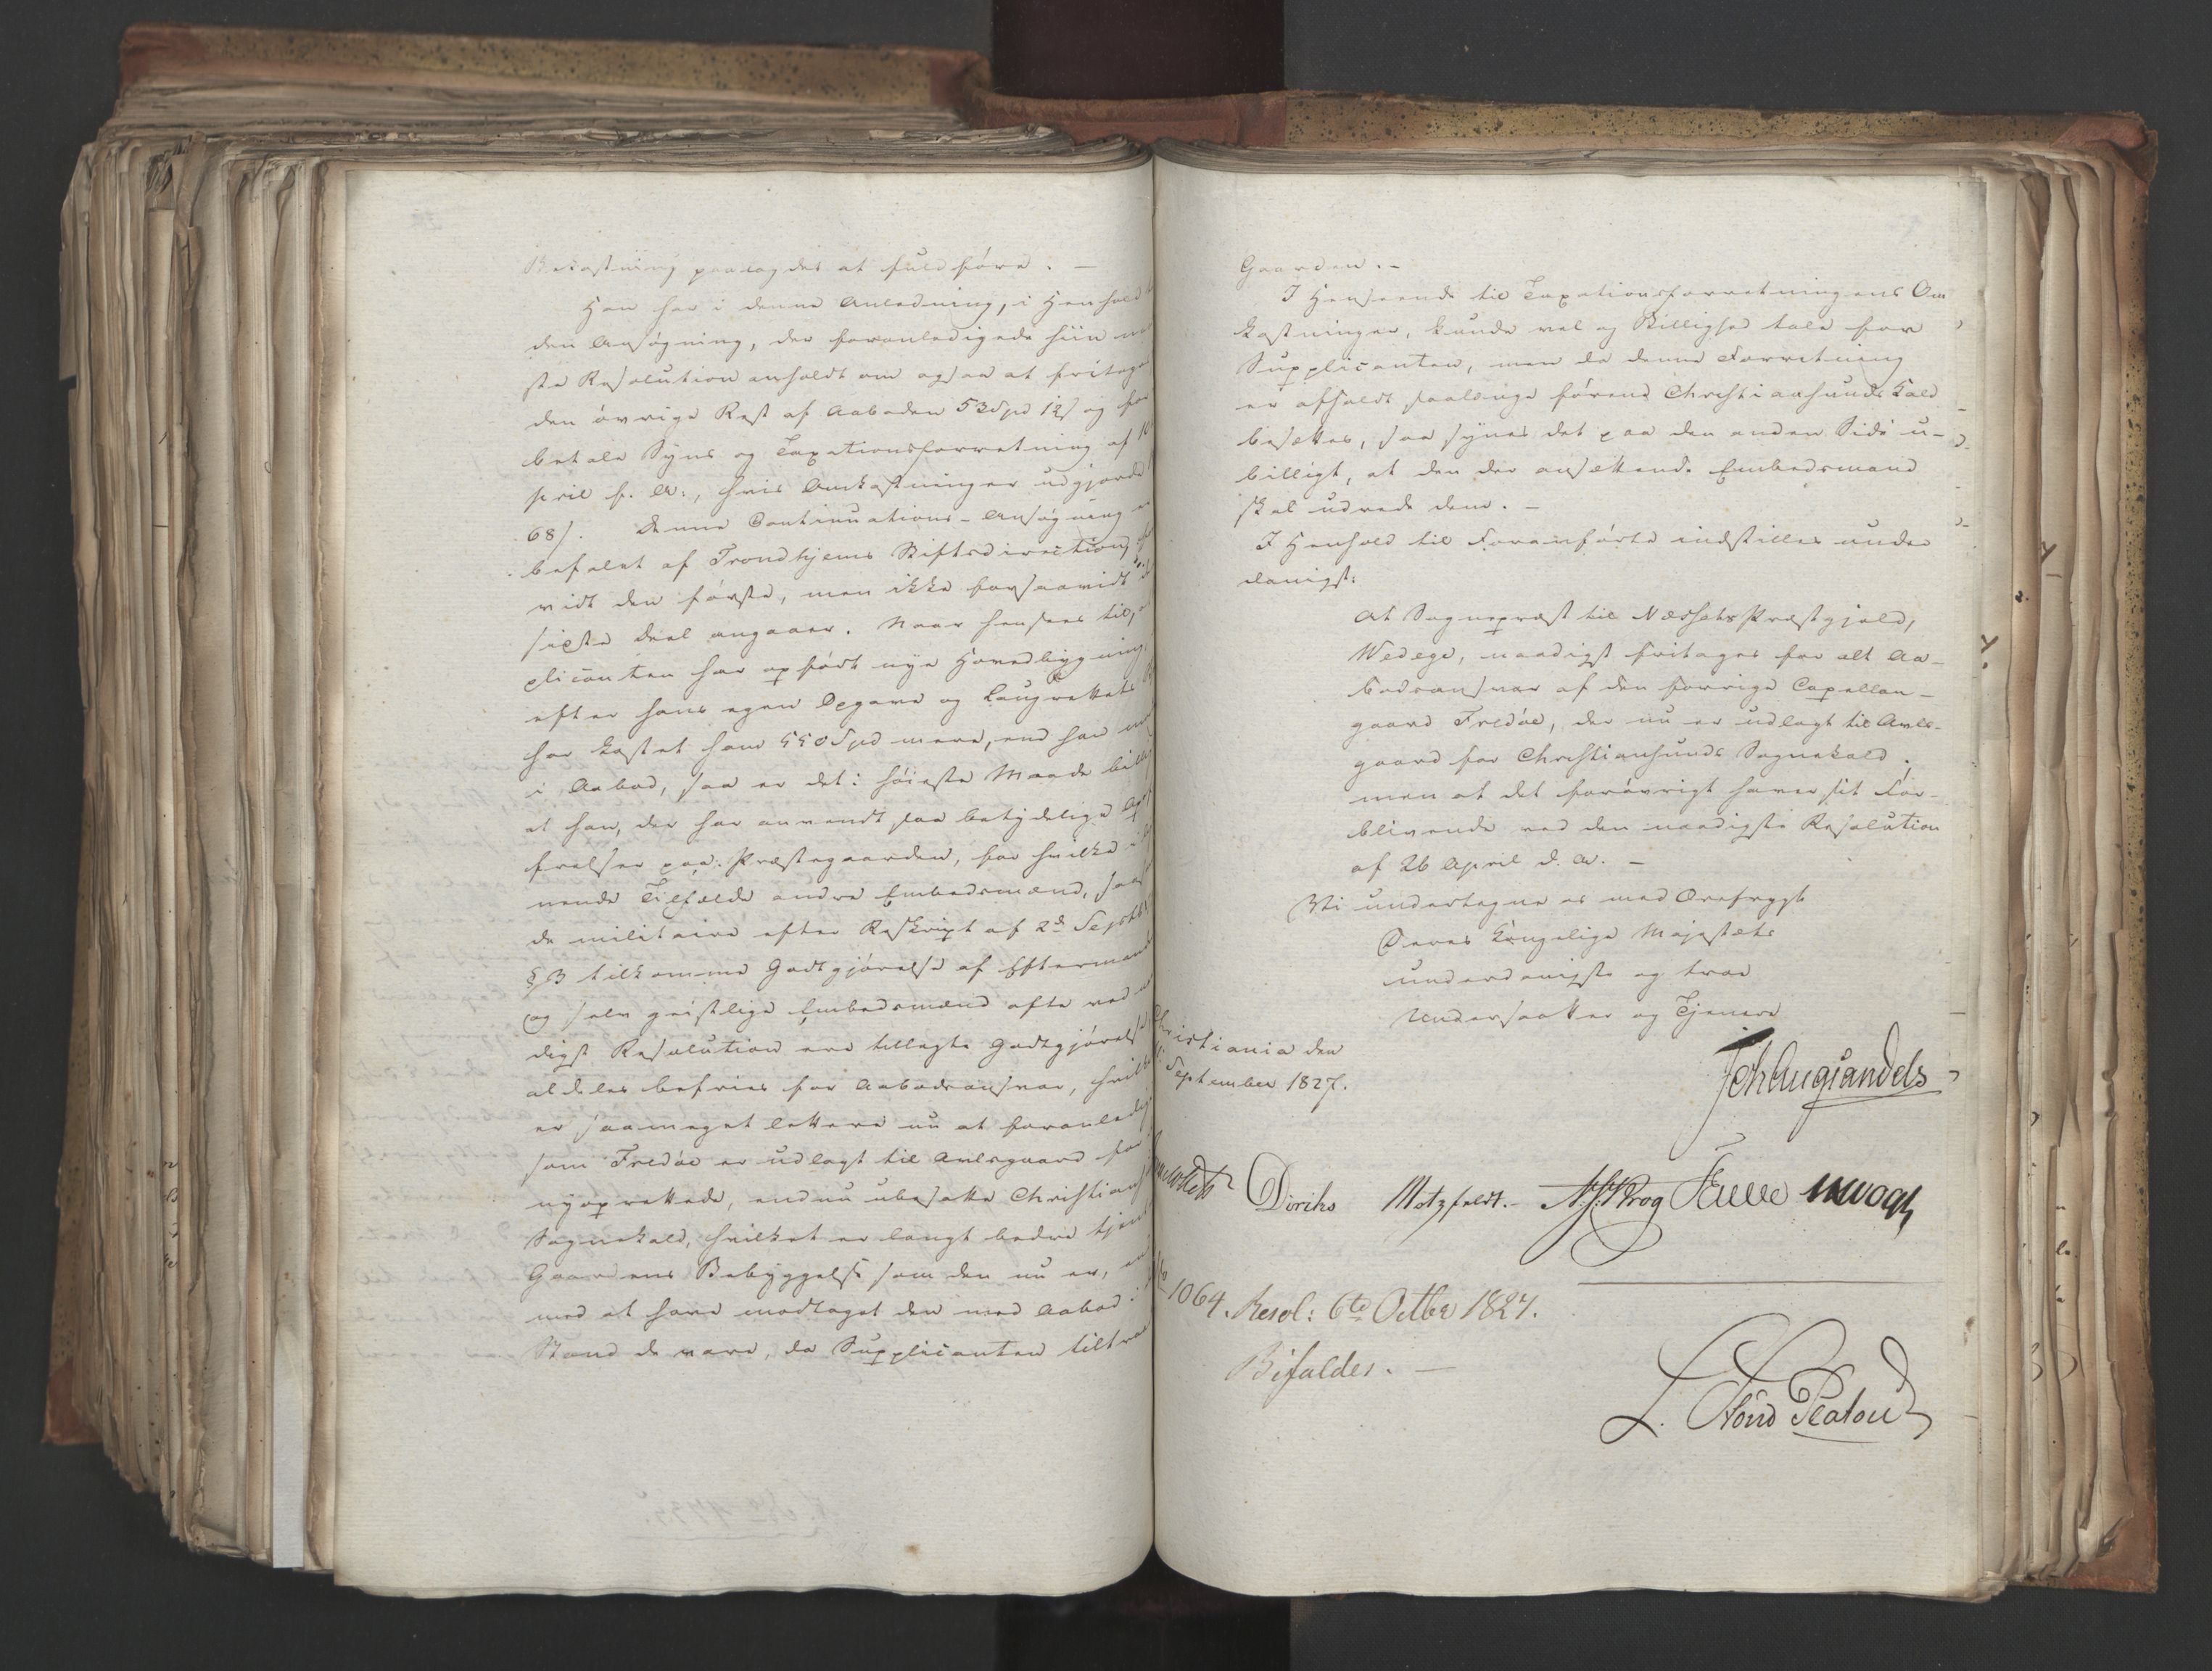 Bekostning paalagdes at fuldføre. —
Han har i denne Anledning, i Henhold
den Ansøgning, der foranledigede hiin
ste Resolution anholdt om ogsaa at fritages
den øvrige Rest af Aaboden 53 Spd 12 s og for
betale Syns og Taxationsforretning af
pril f. A., hvis Omkostninger udgjorde
68 s. Denne Continuations-Ansøgning er
befalet af Trondhjems Stiftsdirection,
vidt den første, men ikke forsaavidt
sidste Deel angaaer. Naar hensees til,
plicanten har opført nye Hovedbygning
efter hans egen Opgave og Laugrettets
har kostet ham 550 Spd mere, end han
i Aabod, saa er det i høieste Maade billig
at han, der har anvendt saa betydelige Op
frelser paa Præstegaarden, for hvilke i
nende Tilfælde andre Embedsmænd, saas
de militaire efter Reskript af 2de Septbr
§ 3 tilkomme Godtgjørelse af Eftermand
og selv geistlige Embedsmænd ofte ved
digst Resolution ere tillagte Godtgjørelse,
aldeles befries for Aabodsansvar, hvilket
er saameget lettere nu at foranledige
som Fredøe er udlagt til Avlsgaard for
nyoprettede, endnu ubesatte Christians
Sognekald, hvilket er langt bedre tjent
Gaardens Bebyggelse som den nu er,
med at have modtaget den med Aabod i
Stand de vare, da Supplicanten tiltraadte
Gaarden. —
I Henseende til Taxationsforretningens Om
kostninger, kunde vel og Billighed tale for
Supplicanten, men da denne Forretning
er afholdt saalænge førend Christiansunds Kald
besættes, saa synes det paa den anden Side u-
billigt, at den der ansættende Embedsmand
skal udrede dem. —
I Henhold til Foranførte indstilles under
danigst:
At Sognepræst til Næssets Præstgjeld,
Wedege, naadigst fritages for alt Aa-
bodsansvar af den forrige Capellan-
gaard Fredøe, der nu er udlagt til Avls-
gaard for Christiansunds Sognekald,
men at det forøvrigt haver sit For-
blivende ved den naadigste Resolution
af 26 April d. A. —
Vi undertegne os med Ærefrygt
Deres Kongelige Majestæts
underdanigste og troe
Undersaatter og Tjenere
Christiania den
September 1827.
Joh Aug Sandels
Diriks Motzfeldt. — Krog Fasting
No 1064. Resol: 6te Octbr 1827.
Bifaldes. —
L. Stoud Platou